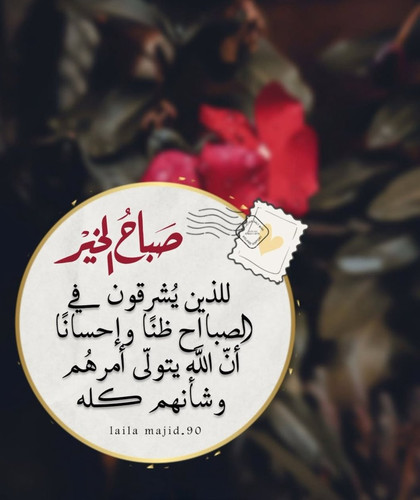 صَبَاحُ الخَيْر
للذين يُشرقون في
الصباح ظنًا وإحسانًا
أنّ اللَّه يتولّى أمرهُم
وشأنهم كله
laila majid.90